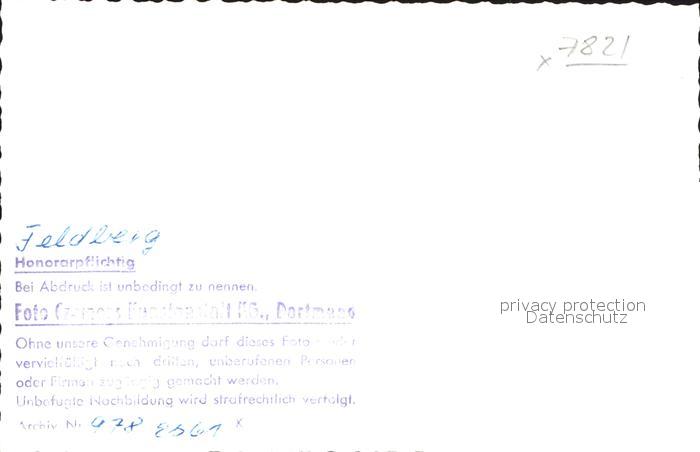 x 7821
Feldberg
Honorarpflichtig
Bei Abdruck ist unbedingt zu nennen.
Foto Kunstanstalt KG., Dortmund
Ohne unsere Genehmigung darf dieses Foto
vervielfältigt noch dritten, unberufenen Personen
oder Firmen zugängig gemacht werden.
Unbefugte Nachbildung wird strafrechtlich verfolgt.
Archiv Nr. 978 x
privacy protection
Datenschutz